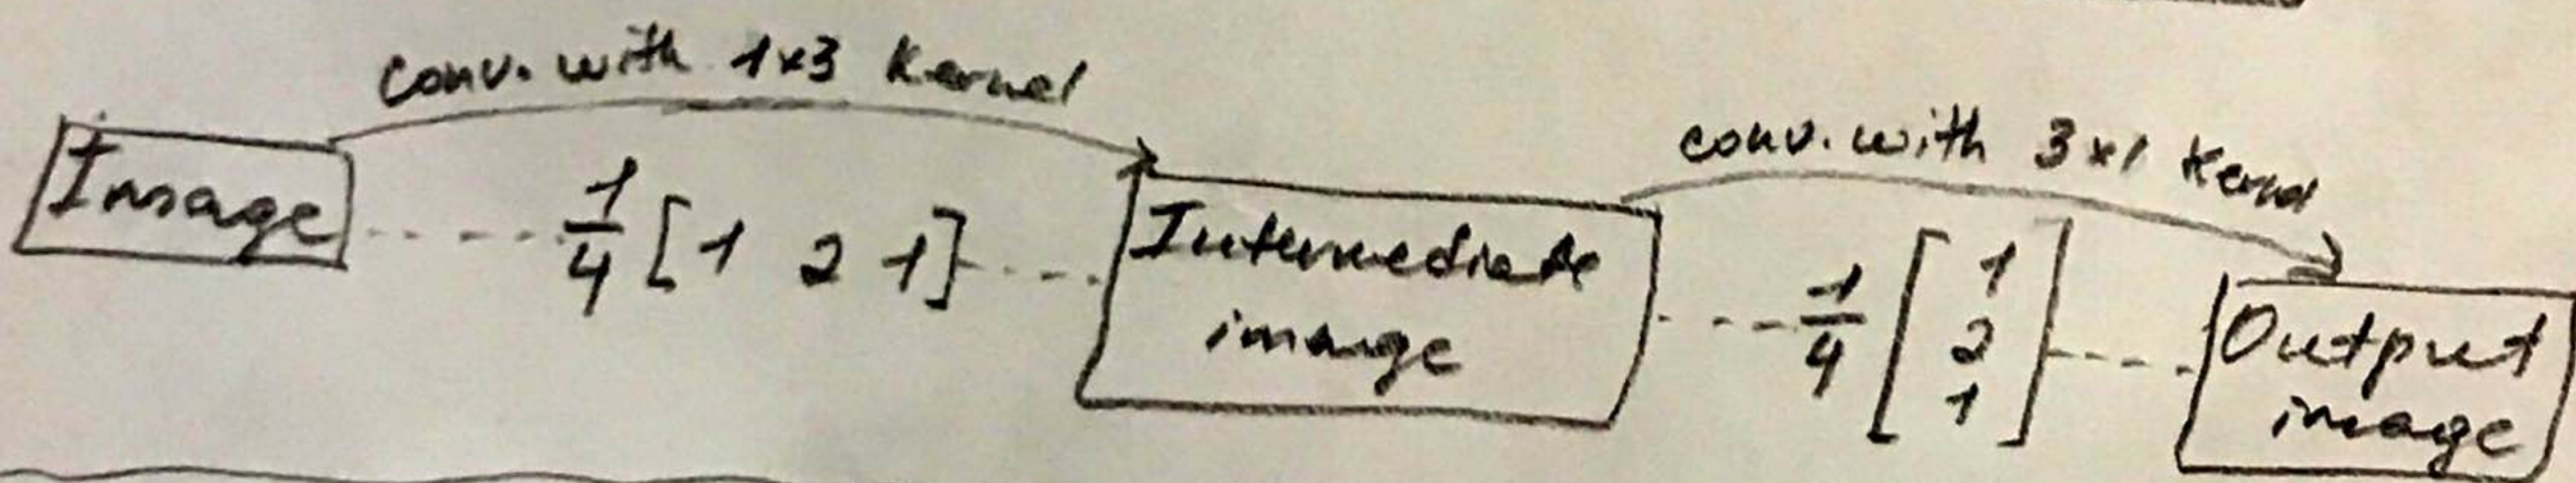 conv. with 1x3 Kernel
Image
1/4 [1 2 1]
Intermediate
image
conv. with 3x1 Kernel
1/4 [1
2
1]
Output
image